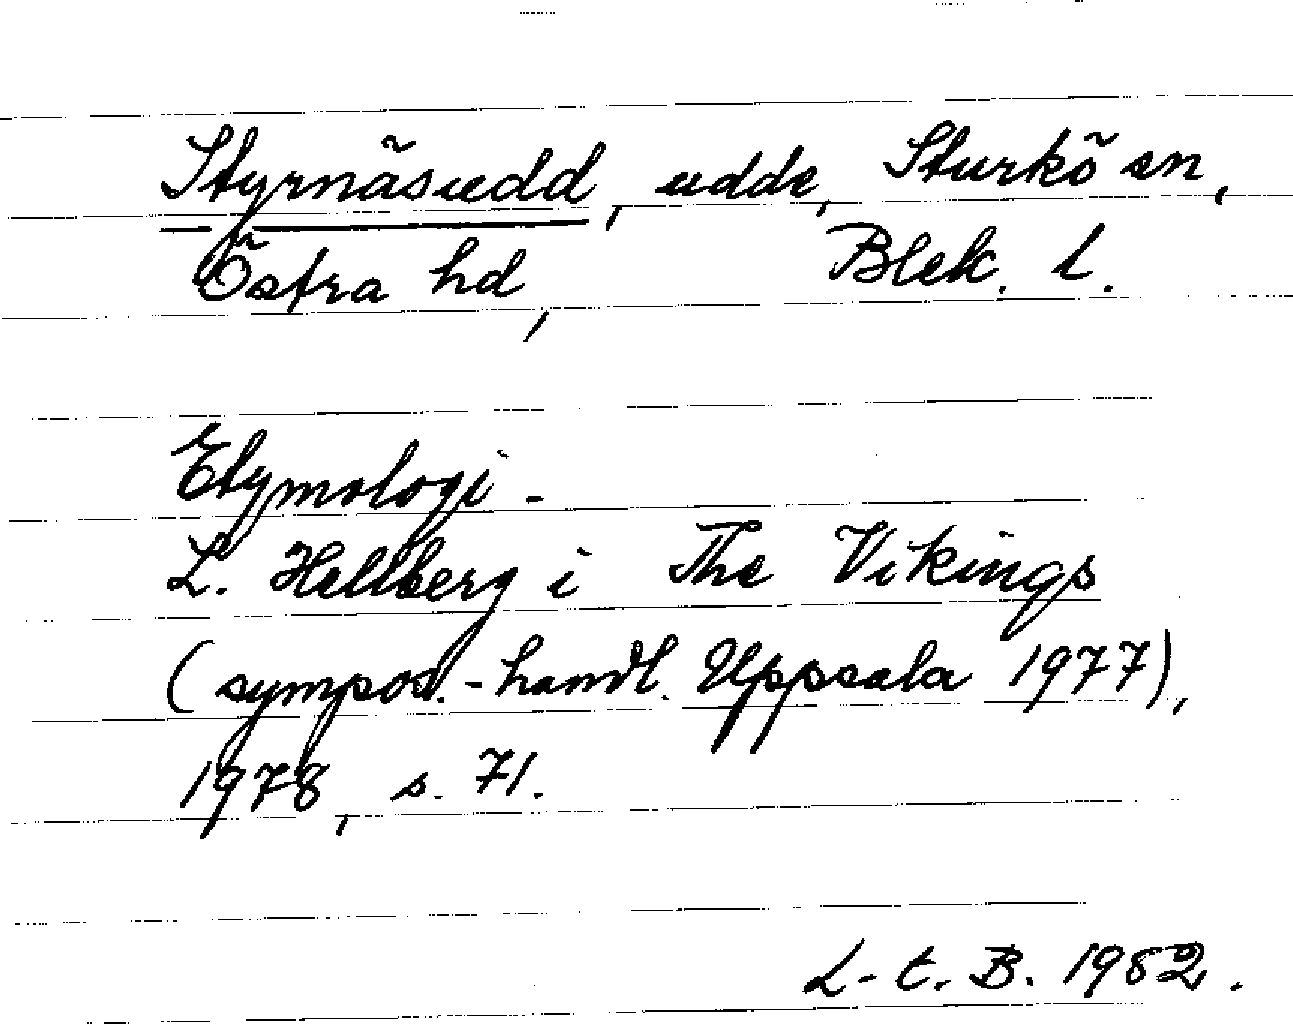 Styrnäsudd, udde, Sturkö sn,
Östra hd, Blek. l.
Etymologi -
L. Hellberg i The Vikings
(sympos.-handl. Uppsala 1977),
1978, s. 71.
L-t. B. 1982.